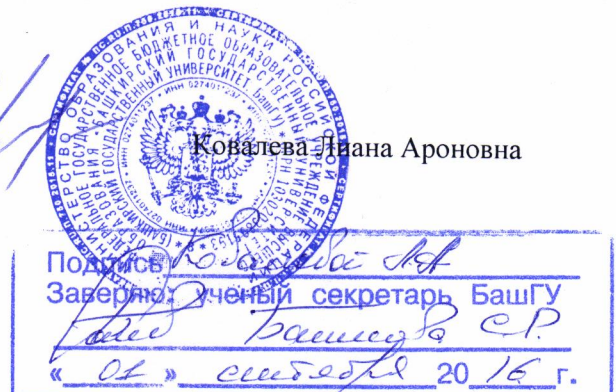 МИНИСТЕРСТВО ОБРАЗОВАНИЯ И НАУКИ РОССИЙСКОЙ ФЕДЕРАЦИИ
ФЕДЕРАЛЬНОЕ ГОСУДАРСТВЕННОЕ БЮДЖЕТНОЕ ОБРАЗОВАТЕЛЬНОЕ УЧРЕЖДЕНИЕ ВЫСШЕГО
ОБРАЗОВАНИЯ БАШКИРСКИЙ ГОСУДАРСТВЕННЫЙ УНИВЕРСИТЕТ
(БАШКИРСКИЙ ГОСУДАРСТВЕННЫЙ УНИВЕРСИТЕТ, БашГУ)
Ковалева Лиана Ароновна
Подпись Ковалевой ЛА
Заверяю: ученый секретарь БашГУ
С.Р.
« 01 » сентября 20 16 г.